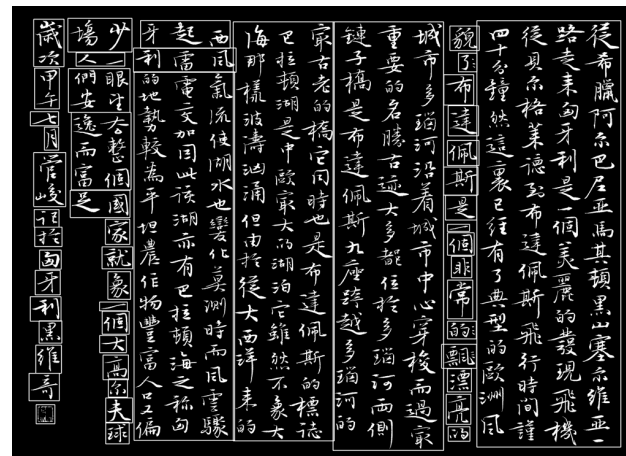 從希臘阿尔巴尼亚馬其頓黑山塞尔維亚一
路走来匈牙利是一個美麗的發現飛機
從貝尔格莱德到布達佩斯飛行時間謹
四十分鐘然這裏已經有了典型的歐洲风
貌了布達佩斯是一個非常的飄漂亮的
城市多瑙河沿着城市中心穿梭而過最
重要的名勝古迹大多都位於多瑙河两側
鏈子橋是布達佩斯九座跨越多瑙河的
最古老的橋它同時也是布達佩斯的標誌
巴拉頓湖是中歐最大的湖泊它雖然不象大
海那樣波濤汹涌但由於從大西洋来的
西风氣流使湖水也變化莫測時而风雲驟
起雷電交加因此該湖亦有巴拉頓海之称匈
牙利的地勢較為平坦農作物豐富人口偏
少一眼望去整個國家就象一個大高尔夫球
場人們安逸而富足
歲次甲午七月管峻記於匈牙利黑維哥